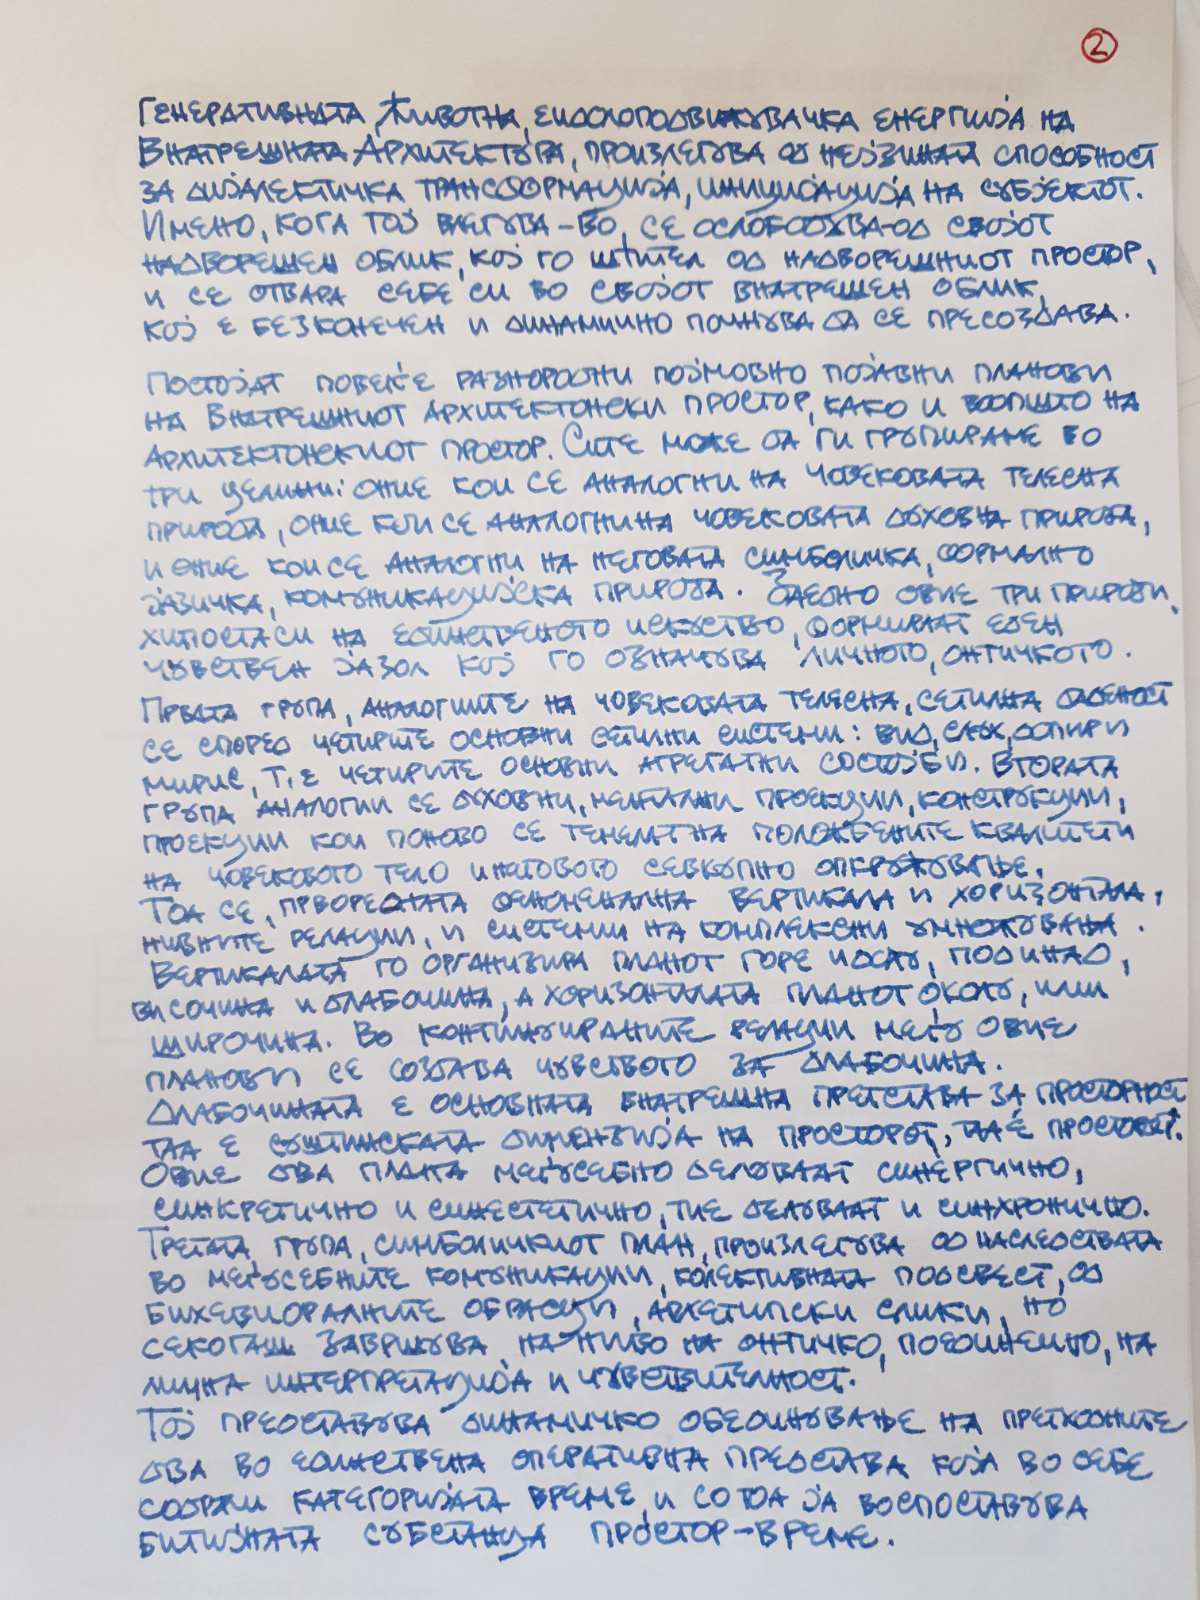 2
Генеративната, животна, ендологоподвижувачка енергија на
Внатрешната Архитектура, произлегува од нејзината способност
за дијалектичка трансформација, иницијација на субјектот.
Имено, кога тој влегува-во, се ослободува-од својот
надворешен облик, кој го штител од надворешниот простор,
и се отвара себе си во својот внатрешен облик,
кој е безконечен и динамично почнува да се пресоздава.
Постојат повеќе разнородни појмовно појавни планови
на Внатрешниот архитектонски простор, како и воопшто на
архитектонскиот простор. Сите може да ги групираме во
три целини: оние кои се аналогни на човековата телесна
природа, оние кои се аналогни на човековата духовна природа,
и оние кои се аналогни на неговата симболичка, формално
јазичка, комуникацијска природа. Заедно овие три природи,
хипостаси на единственото искуство, формираат еден
чувствен јазол кој го означува личното, онтичкото.
Првата група, аналогиите на човековата телесна, сетилна даденост
се според четирите основни сетилни системи: вид, слух, допир и
мирис, т.е четирите основни агрегатни состојби. Втората
група аналогии се духовни, ментални проекции, конструкции,
проекции кои поново се темелат на положбените квалитети
на човековото тело и натовото севкупно опкружување.
Тоа се, првореdната феноменална вертикала и хоризонтала,
нивните релации, и системи на комплексни умножувања.
Вертикалата го организира планот горе и долу, под и над,
височина и длабочина, а хоризонталата планот околу, или
широчина. Во континуираните релации меѓу овие
планови се создава чувството за длабочина.
Длабочината е основната внатрешна претстава за просторност
таа е суштинската димензија на просторот, таа е просторот.
Овие два плана меѓусебно делуваат синергично,
синкретично и синестетично, тие делуваат и синхронично.
Третата група, симболичкиот план, произлегува од наследствата
во меѓусебните комуникации, колективната подсвест, од
бихевиоралните обрасци, архетипски слики, но
секогаш завршува на ниво на онтичко, поединечно, на
лична интерпретација и чувствителност.
Тој предоставува динамичко обединување на претходните
два во единствена оперативна представа која во себе
содржи категоријата време и со тоа ја воспоставува
битијната субстанца простор-време.